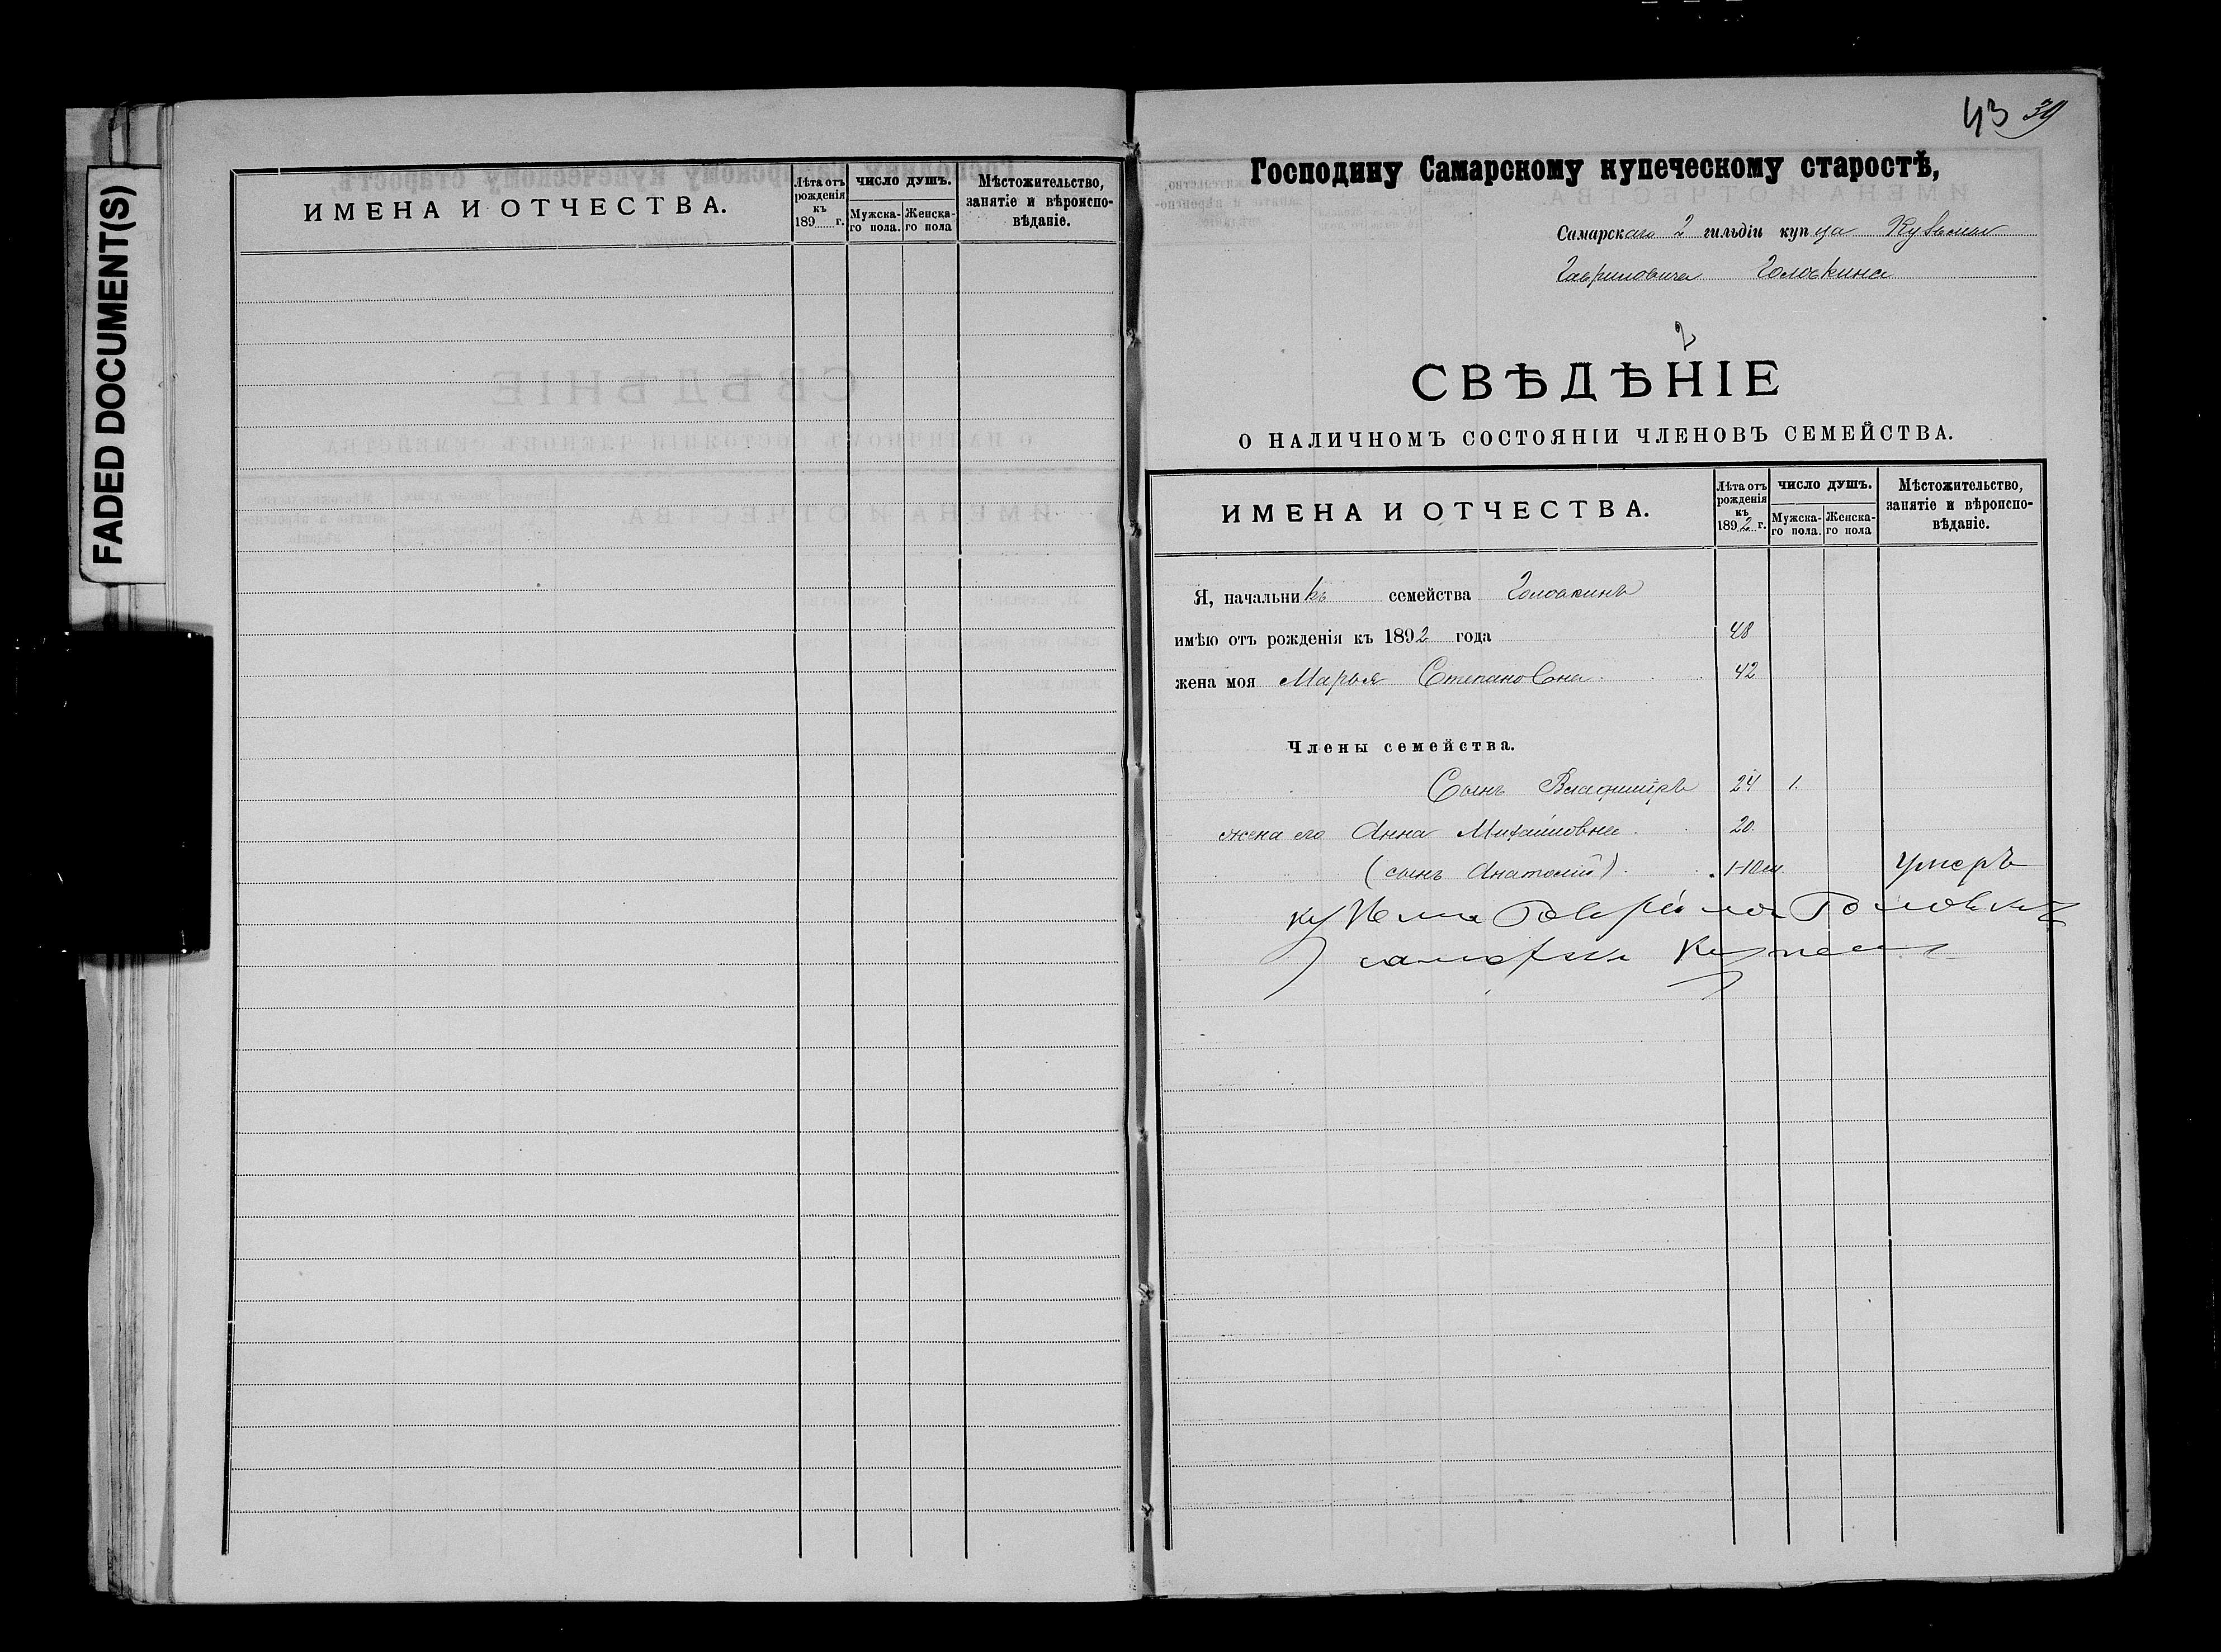 FADED DOCUMENT(S)
ИМЕНА И ОТЧЕСТВА.
Лѣта отъ рожденія къ 189 г.
ЧИСЛО ДУШЪ.
Мужска-го пола.
Женска-го пола
Мѣстожительство, занятіе и вѣроиспо-вѣданіе.
43 39
Господину Самарскому купеческому старостѣ,
Самарскаго 2 гильдіи купца Кузьмы
Гавриловича Головкина
2
СВѢДѢНІЕ
О НАЛИЧНОМЪ СОСТОЯНІИ ЧЛЕНОВЪ СЕМЕЙСТВА.
ИМЕНА И ОТЧЕСТВА.
Лѣта отъ рожденія къ 1892 г.
ЧИСЛО ДУШЪ.
Мужска-го пола.
Женска-го пола
Мѣстожительство, занятіе и вѣроиспо-вѣданіе.
Я, начальникъ семейства Головкинъ
имѣю отъ рожденія къ 1892 года 48
жена моя Марья Степановна 42
Члены семейства.
Сынъ Владиміръ 24 1.
жена его Анна Михайловна 20
(сынъ Анатолій) 1-10 м. умеръ
Кузма Гаврилов Головкин